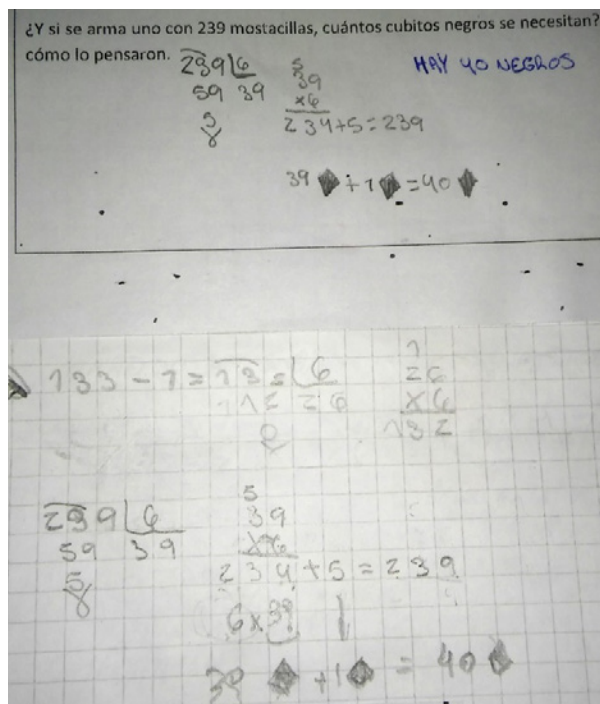 ¿Y si se arma uno con 239 mostacillas, cuántos cubitos negros se necesitan?
cómo lo pensaron.
HAY 40 NEGROS
239 6
59 39
5
5
39
x6
234+5=239
39 + 1 = 40
133 - 1 = 13 6
12 26
0
1
26
x6
132
239 6
59 39
5
5
39
x6
234+5=239
6x39
39 + 1 = 40